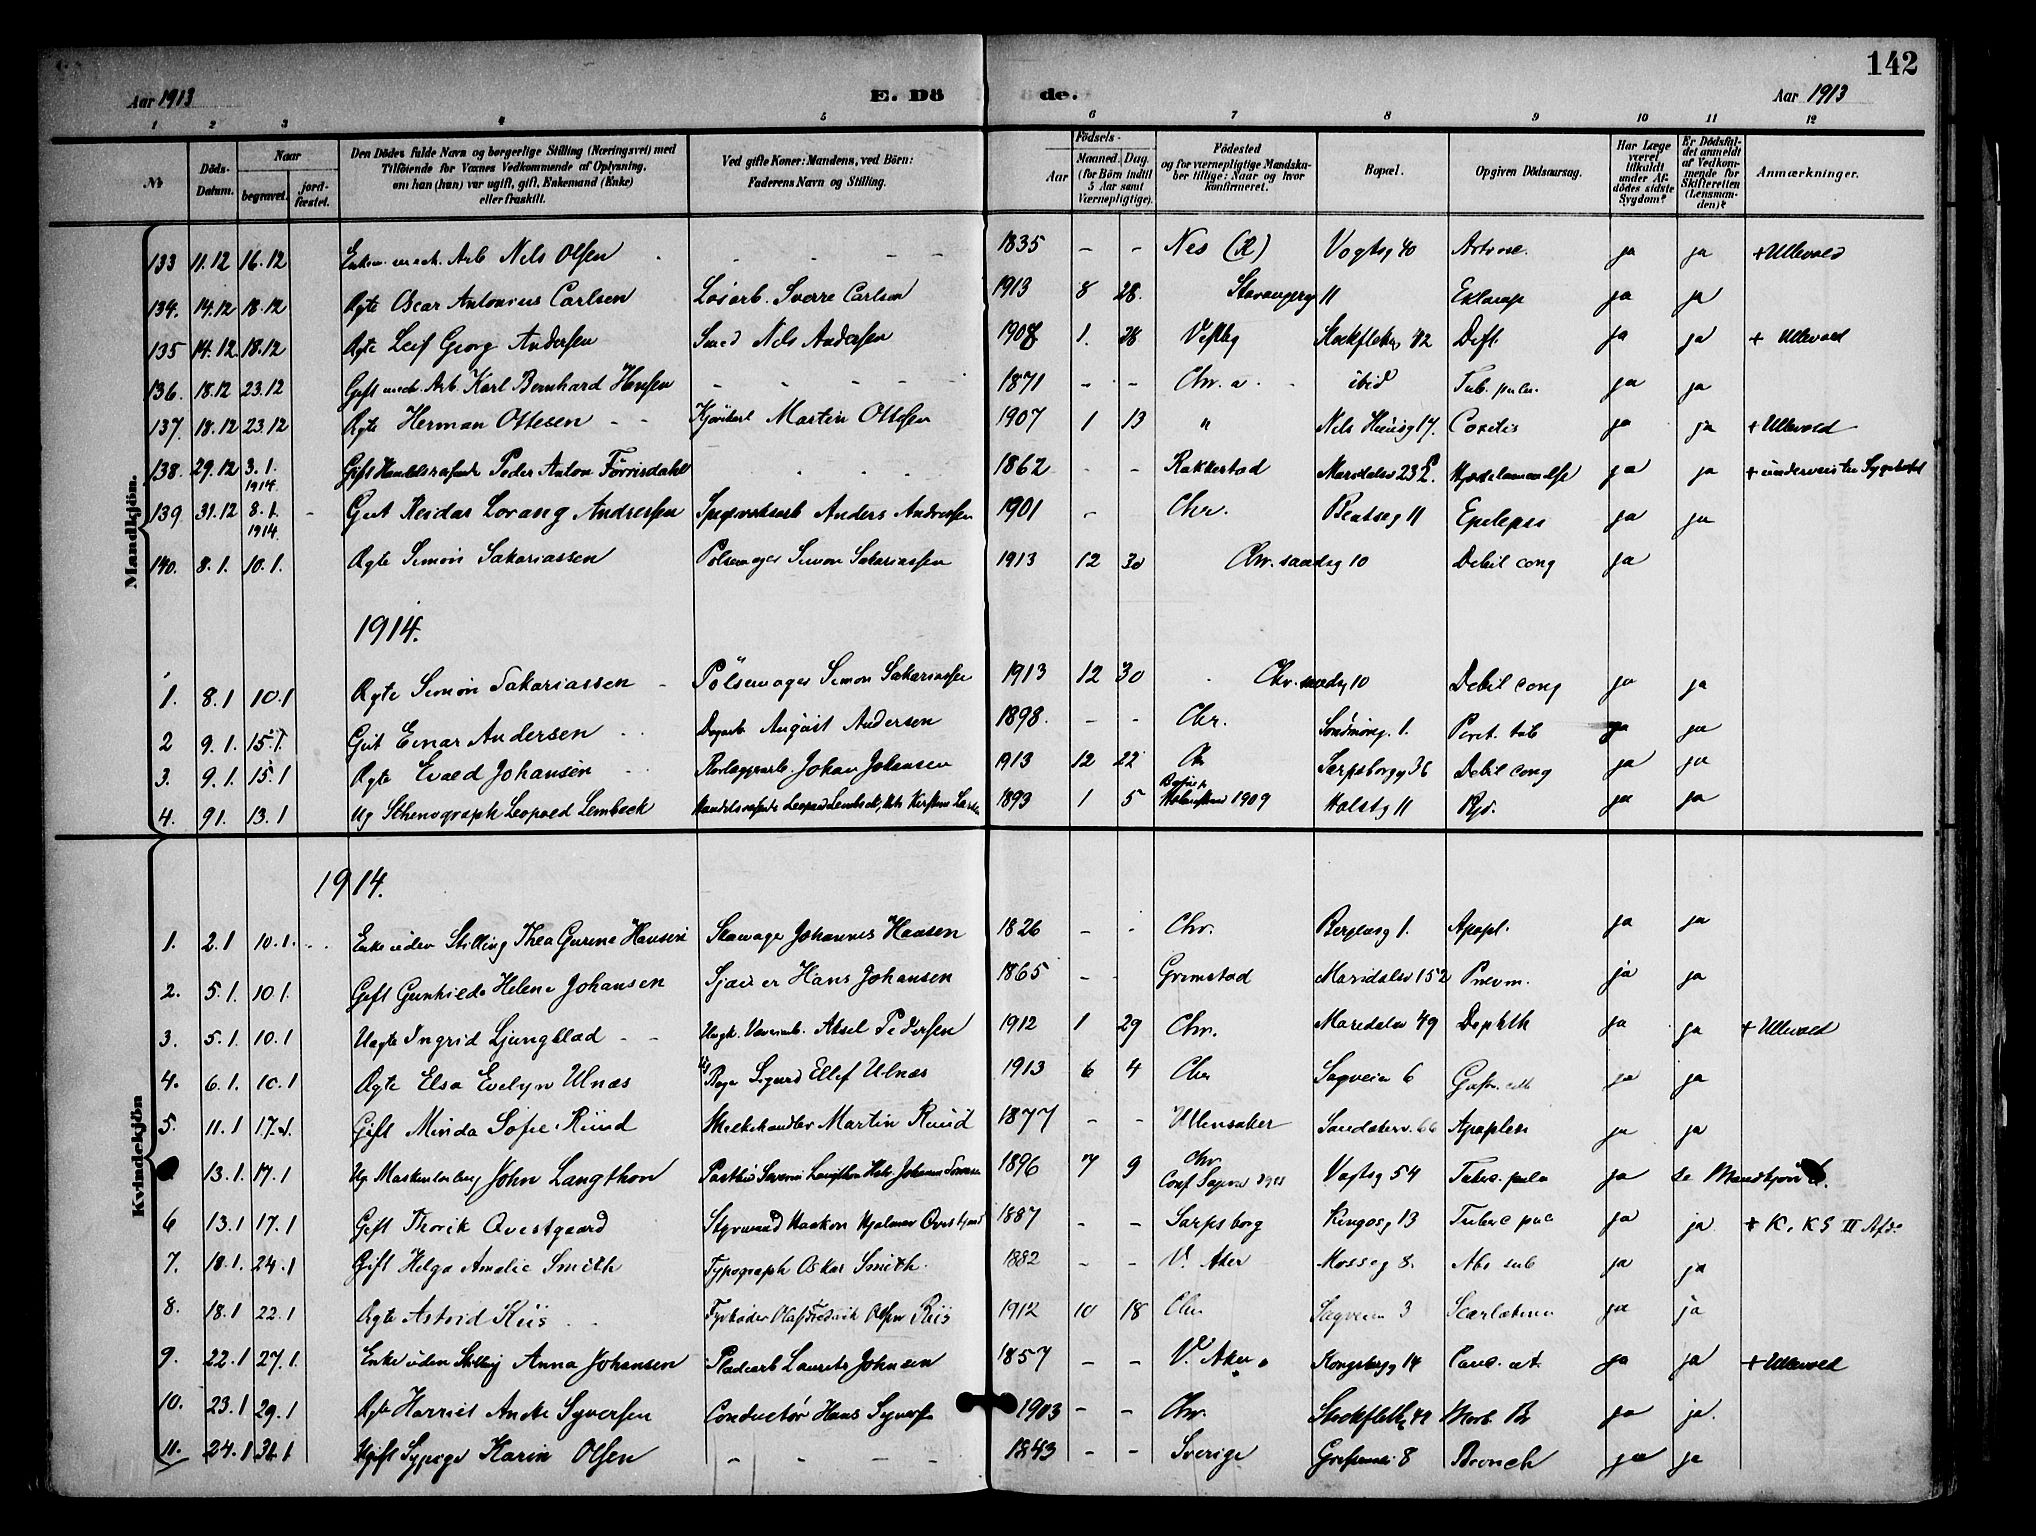 142
Aar 1913 E. Dö de. Aar 1913
1 2 3 4 5 6 7 8 9 10 11 12
№ Döds-Datum. Naar begravet. jordfæstet. Den Dödes fulde Navn og borgerlige Stilling (Næringsvei) med Tilföiende for Voxnes Vedkommende af Oplysning, om han (hun) var ugift, gift, Enkemand (Enke) eller fraskilt. Ved gifte Koner: Mandens, ved Börn: Faderens Navn og Stilling. Födsels- Aar Maaned. Dag. (for Börn indtil 5 Aar samt Værnepligtige). Födested og for værnepligtige Mandskaber tillige: Naar og hvor konfirmeret. Bopæl. Opgiven Dödsaarsag. Har Læge været tilkaldt under Afdödes sidste Sygdom? Er Dödsfaldet anmeldt af Vedkommende for Skifteretten (Lensmanden)? Anmærkninger.
Mandkjön.
133 11.12 16.12 Nels Olsen - - - - 1835 - - Nes (R) Vogtsg 40 ja ja + Ullevold
134. 14.12 18.12 Ægte Oscar Antonius Carlsen Løsarb. Sverre Carlsen 1913 8 28. Stavangerg 11 Eklamp ja ja
135 14.12 18.12 Ægte Leif Georg Andersen Smed Nels Andersen 1908 1. 28 Vestby 42 Dift. ja ja + Ullevold
136. 18.12 23.12 Gift Arb. Karl Bernhard Hansen - - - - 1871 - - Chr. a. ibid Tub. pulm. ja ja
137. 18.12 23.12 Ægte Herman Ottesen - - Martin Ottesen 1907 1 13 " Nels Huusg 17. Coxitis ja ja + Ullevold
138. 29.12 3.1. 1914. Gift Peder Anton Førrisdahl 1862 - - Rakkestad Maridalsv 23 ja ja +
139 31.12 8.1. 1914. - Gut Reidar Lorang Andressen Anders Andressen 1901 - Chr. Beatseg 11 Epilepsi ja ja
140. 8.1. 10.1. Ægte Simon Sakariassen Pølsemager Simon Sakariassen 1913 12 30 Chr.sandsg 10 Debil cong ja
1914.
1. 8.1 10.1 Ægte Simon Sakariassen - Pølsemager Simon Sakariassen 1913 12 30 Chr.sandsg 10 Debil cong ja ja
2 9.1. 15.1. Gut Einar Andersen Dagarb August Andersen 1898 - - Chr. Søndmøreg. 1. Perit. tub ja ja
3. 9.1. 15.1 Ægte Evald Johansen Johan Johansen 1913 12 22 Sarpsborgg 36 Debil cong ja ja
4. 9.1. 13.1 Ug Sthenograph Leopold Lembeck Leopold Lembeck, 1893 1 5 1909 Holstg 11 ja ja
Kvindekjön
1914.
1. 2.1 10.1. Enke uden Stilling Thea Gurine Hansen Johannes Hansen 1826 - - Chr. Bergensg 1. Apopl. ja ja
2. 5.1. 10.1. Gift Gunhilda Helene Johansen Sjauer Hans Johansen 1865 - - Grimstad Maridalsv 152 Pneum. ja ja
3. 5.1. 10.1 Uægte Ingrid Ljungblad - - Aksel Pedersen 1912 1 29 Chr. Maridalsv 49 Diphth ja ja + Ullevold
4. 6.1. 10.1 Ægte Elsa Evelyn Ulnæs Sigurd Ellef Ulnæs 1913 6 4 Chr Sagveien 6 ja ja
5. 11.1 17.1. Gift Minda Sofie Ruud Melkehandler Martin Ruud 1877 - - Ullensaker Sandakerv. 66 Apoplexi ja ja
13.1. 17.1 Ug John Langthon 1896 7 9 Chr Conf Vogtsg 54 Tuberc. pulm ja se Mandkjøn 6.
6 13.1 17.1 Gift Thorik Qvestgaard Styrmand Haakon Hjalmar Qvestgaard 1887 - - Sarpsborg Kingosg 13 Tuberc pul ja ja. + K. K S II Afd.
7. 18.1. 24.1 Gift Helga Amalie Smith Typograph Oskar Smith. 1882 - - V. Aker Mosseg 8. ja ja
8. 18.1 22.1 Ægte Astrid Riis Fyrbøder Olaf Fredrik Olsen Riis 1912 10 18 Chr Sagveien 3 Scarlatina ja ja
9. 22.1 27.1. Enke uden Stilling Anna Johansen Pladsarb Laurits Johnsen 1857 - - V. Aker Kongsbergg 14 Canc. ut. ja ja + Ullevold
10. 23.1 29.1 Ægte Harriet Syversen Conductør Hans Syversen 1903 - - Chr. 49 Morb. B ja ja.
11. 24.1 31.1 Ugift Sypige Karin Olsen - - - - 1843 - - Sverige Grefsenvei 8 Bronch ja ja